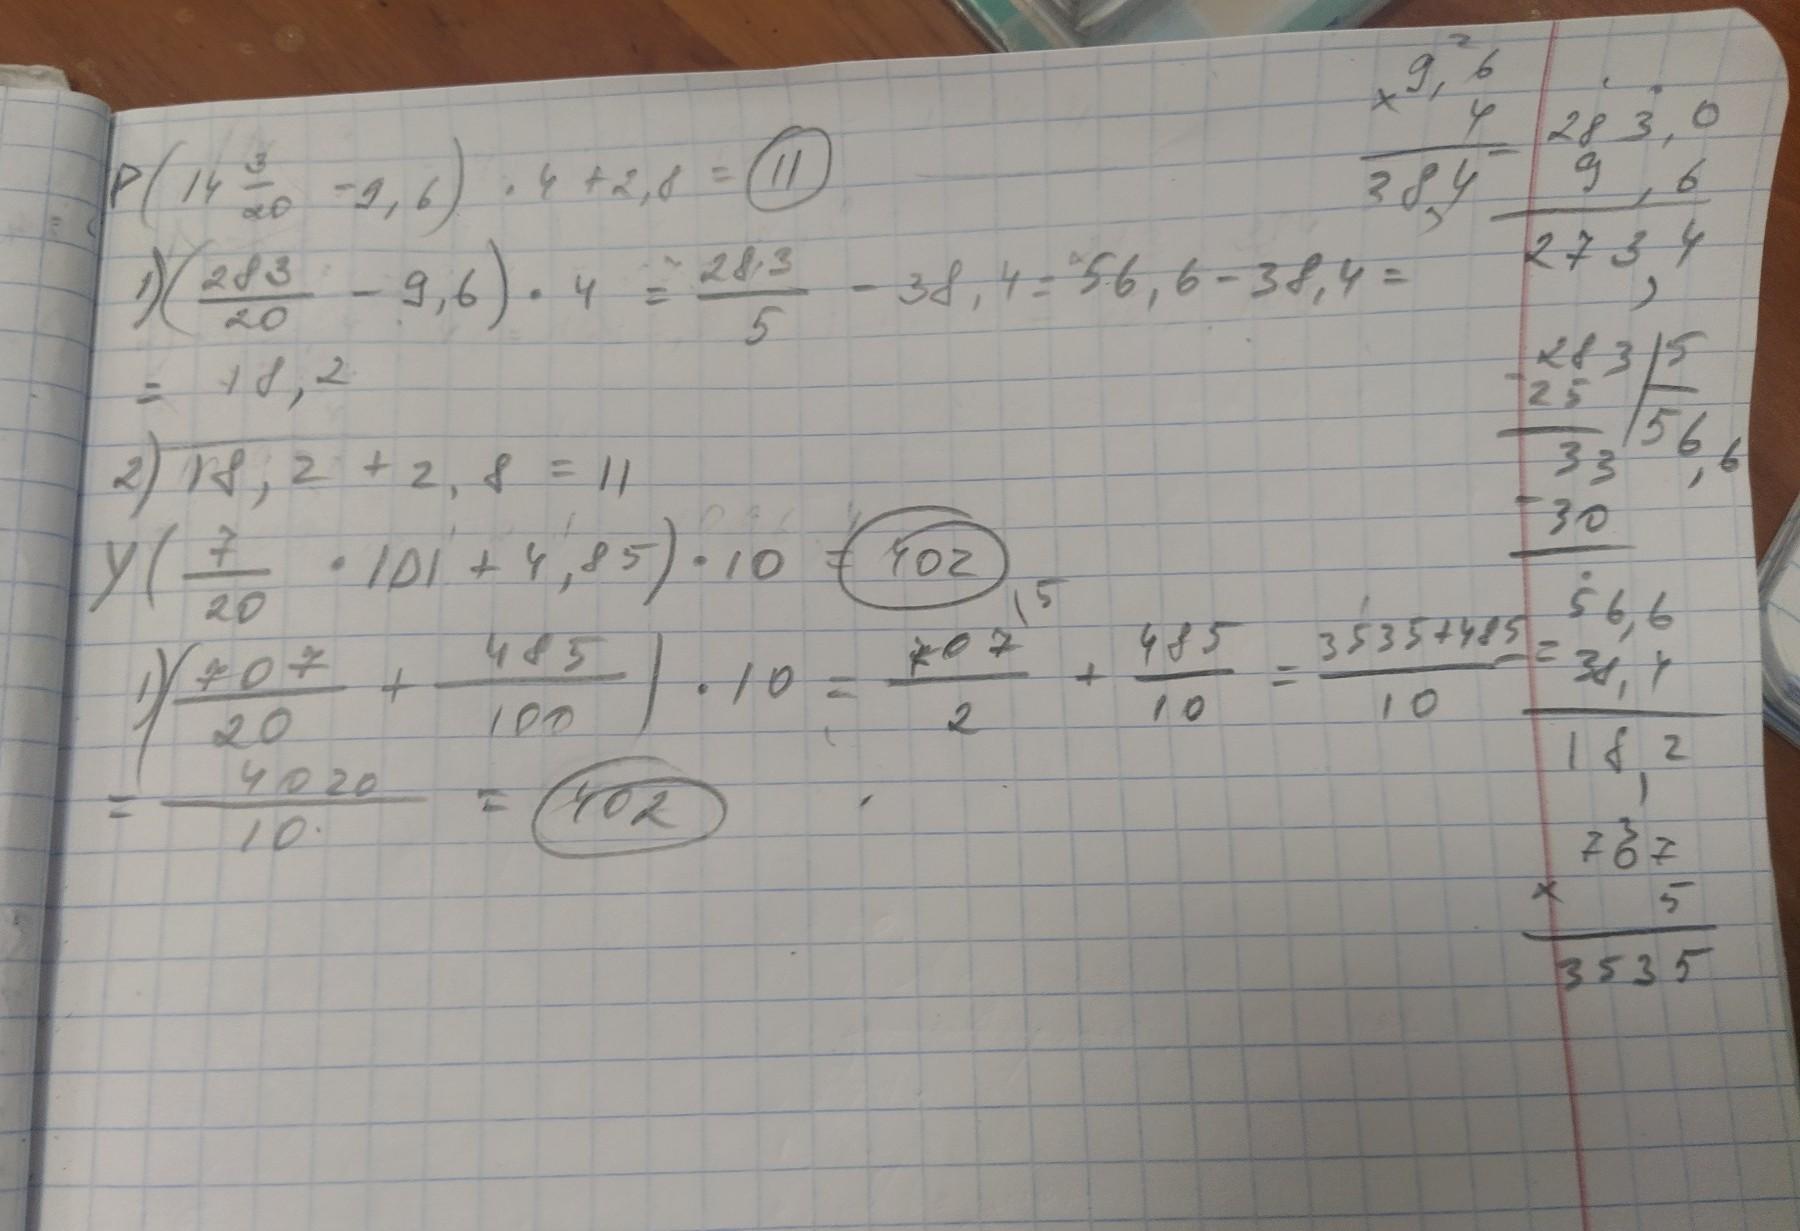 P(14 3/20 - 9,6) · 4 + 2,8 = 11
1) (283/20 - 9,6) · 4 = 283/5 - 38,4 = 56,6 - 38,4 =
= 18,2
2) 18,2 + 2,8 = 11
У(7/20 · 101 + 4,85) · 10 = 402
1) (707/20 + 485/100) · 10 = 707/2 \5 + 485/10 = 3535+485/10 =
= 4020/10 = 402
2
9,6
× 4
38,4
- 283,0
9,6
273,4
- 283 | 5
25 | 56,6
33
- 30
56,6
38,4
18,2
3
707
× 5
3535